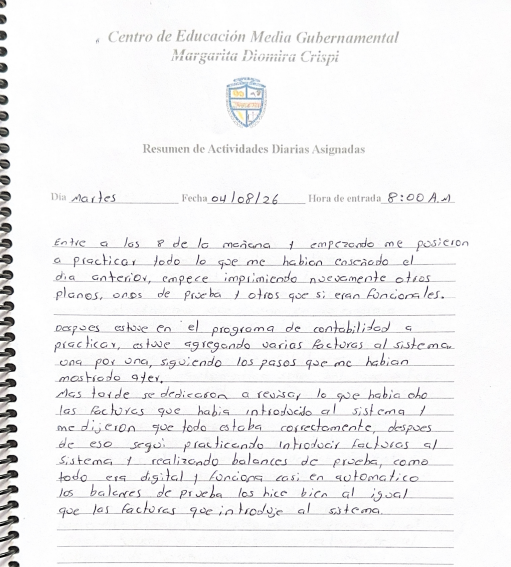 Centro de Educación Media Gubernamental
Margarita Diomira Crispi
Resumen de Actividades Diarias Asignadas
Dia Martes Fecha 04/08/26 Hora de entrada 8:00 A.M
Entre a las 8 de la mañana y empezando me posicion
a practicar todo lo que me habian enseñado el
dia anterior, empece imprimiendo nuevamente otros
planos, unos de prueba y otros que si eran funcionales.
Despues estuve en el programa de contabilidad a
practicar, estuve agregando varias facturas al sistema
una por una, siguiendo los pasos que me habian
mostrado ayer.
Mas tarde se dedicaron a revisar lo que habia
las facturas que habia introducido al sistema y
me dijeron que todo estaba correctamente, despues
de eso segui practicando introducir facturas al
sistema y realizando balances de prueba, como
todo era digital y funciona casi en automatico
los balances de prueba los hice bien al igual
que las facturas que introduje al sistema.